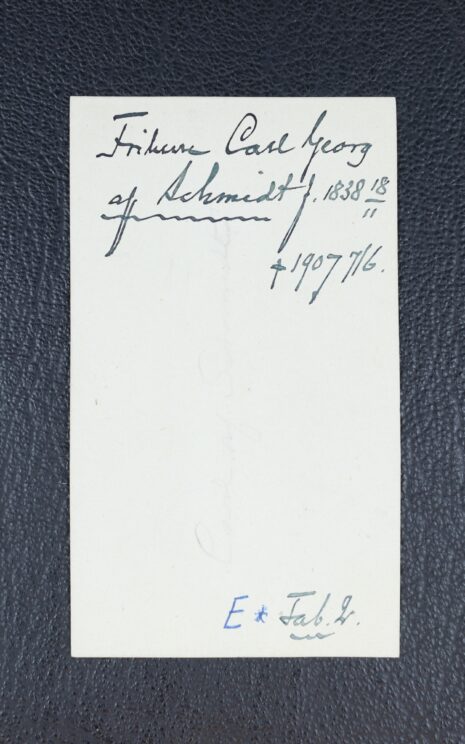 Friherre Carl Georg
af Schmidt f. 1838 18/11
† 1907 7/6.
E * Tab. 2.